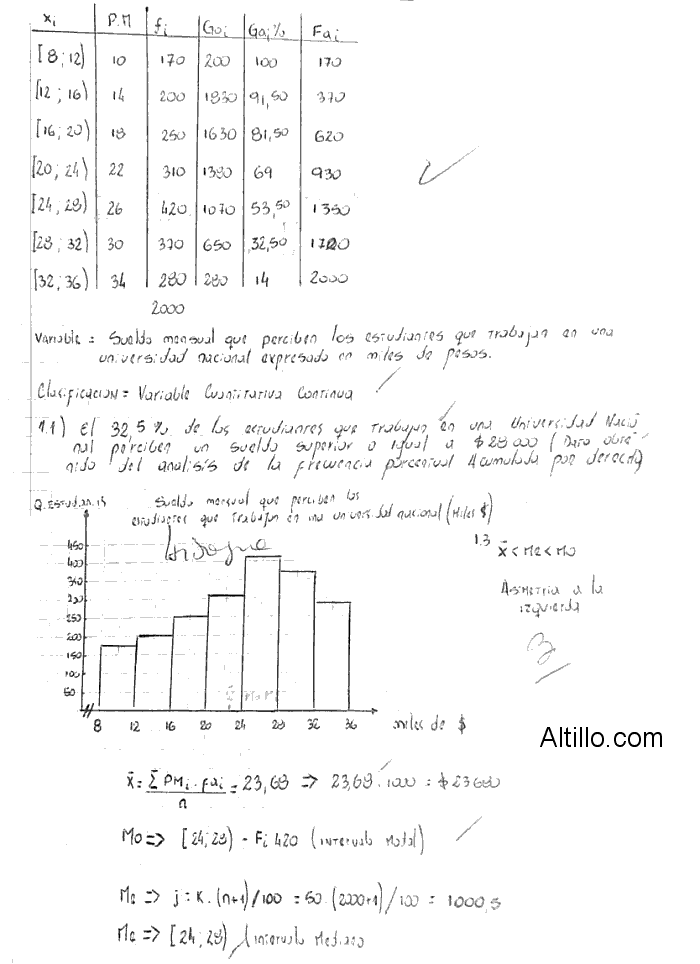 xi P.M fi Gai Gai% Fai
[8;12) 10 170 200 100 170
[12;16) 14 200 1830 91,50 370
[16;20) 18 250 1630 81,50 620
[20;24) 22 310 1380 69 930
[24;28) 26 420 1070 53,50 1350
[28;32) 30 370 650 32,50 1720
[32;36) 34 280 280 14 2000
2000
Variable = Sueldo mensual que perciben los estudiantes que trabajan en una
universidad nacional expresado en miles de pesos.
Clasificacion = Variable Cuantitativa Continua
1.1) el 32,5 % de los estudiantes que trabajan en una Universidad Nacio
nal perciben un sueldo superior o igual a $28000 (Dato obte
nido del analisis de la frecuencia porcentual Acumulada por derecha)
Q. Estudiantes Sueldo mensual que perciben los
estudiantes que trabajan en una universidad nacional (Miles $)
450
400
350
300
250
200
150
100
50
8 12 16 20 24 28 32 36 miles de $
1.3 x̄ < Me < Mo
Asimetria a la
izquierda
Altillo.com
x̄ = Σ PMi . fai / n = 23,68 => 23,68 . 1000 = $23680
Mo => [24;28) - Fi 420 (intervalo Modal)
Me => j = K . (n+1)/100 = 50 . (2000+1)/100 = 1000,5
Me => [24;28) (intervalo Mediano